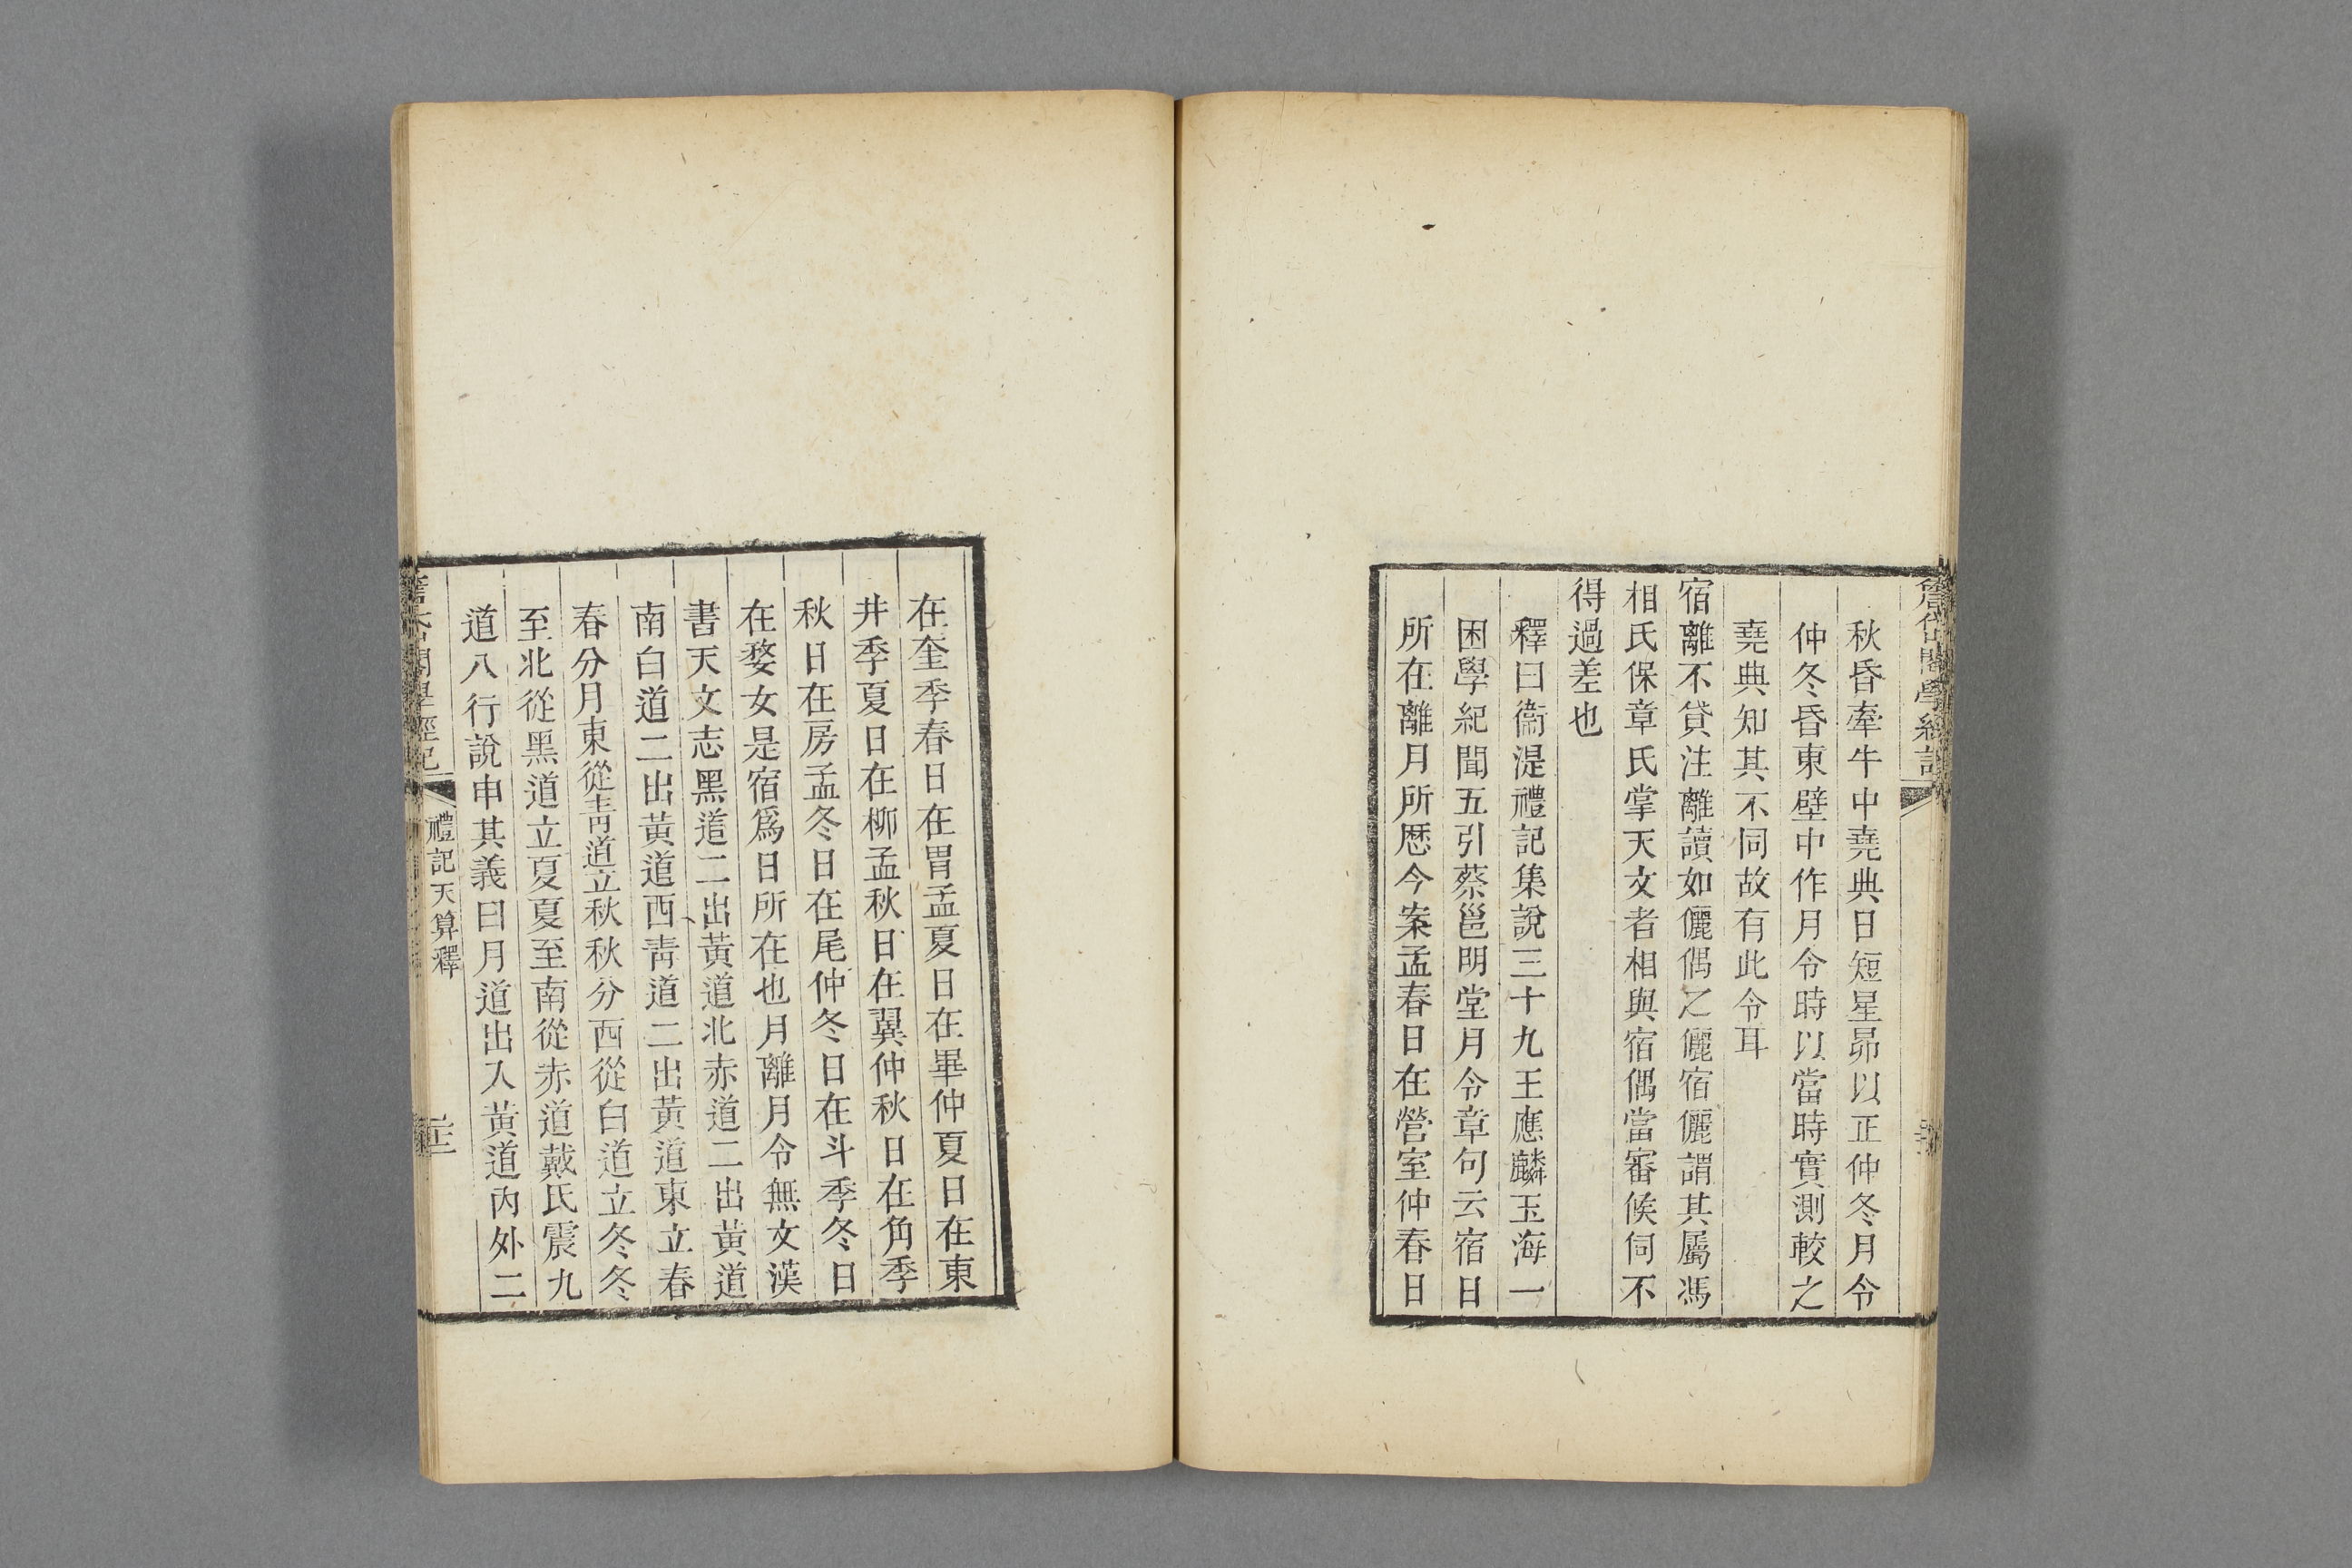 秋昏牽牛中堯典日短星昴以正仲冬月令
仲冬昏東壁中作月令時以當時實測較之
堯典知其不同故有此令耳
宿離不貸注離讀如儷偶之儷宿儷謂其屬馮
相氏保章氏掌天文者相與宿偶當審候伺不
得過差也
釋曰衞湜禮記集說三十九王應麟玉海一
困學紀聞五引蔡邕明堂月令章句云宿日
所在離月所歷今案孟春日在營室仲春日
在奎季春日在胃孟夏日在畢仲夏日在東
井季夏日在柳孟秋日在翼仲秋日在角季
秋日在房孟冬日在尾仲冬日在斗季冬日
在婺女是宿爲日所在也月離月令無文漢
書天文志黑道二出黃道北赤道二出黃道
南白道二出黃道西靑道二出黃道東立春
春分月東從靑道立秋秋分西從白道立冬冬
至北從黑道立夏夏至南從赤道戴氏震九
道八行說申其義曰月道出入黃道內外二
禮記天算釋